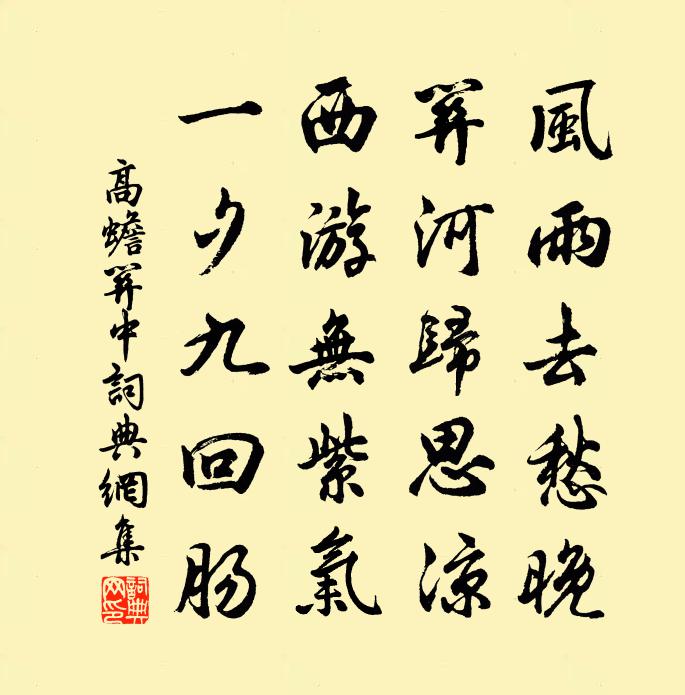 風雨去愁晚
關河歸思涼
西游無紫氣
一夕九回腸
高蟾關中詞典網集
詞典網印